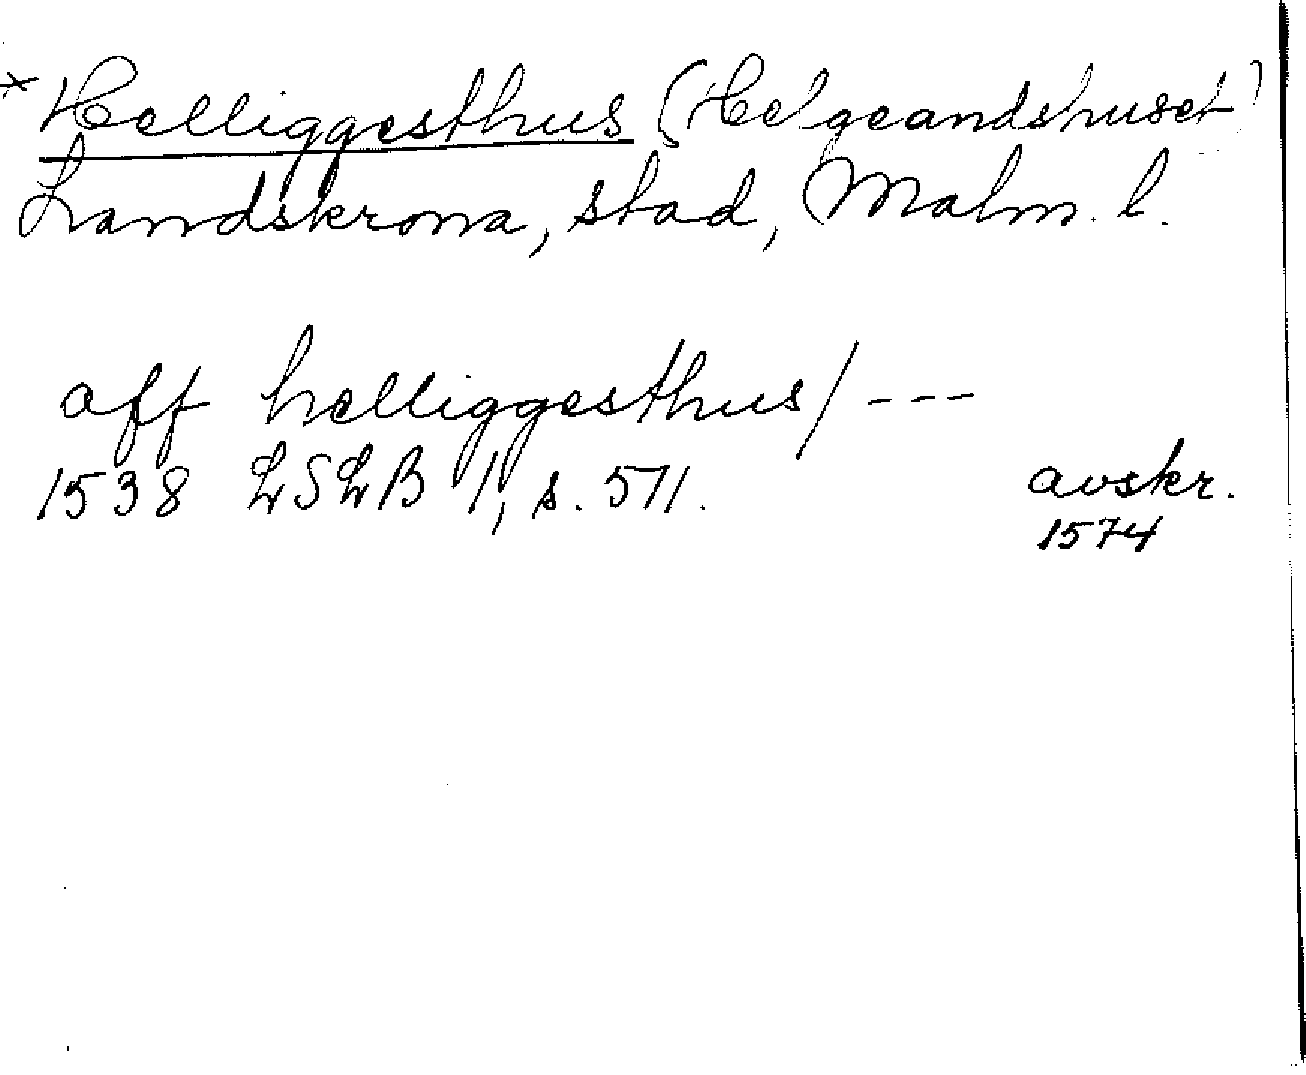 * Helliggesthus (Helgeandshuset)
Landskrona, stad, Malm. l.
aff helliggesthus/ ---
1538 LSLB 1, s. 571.
avskr.
1574